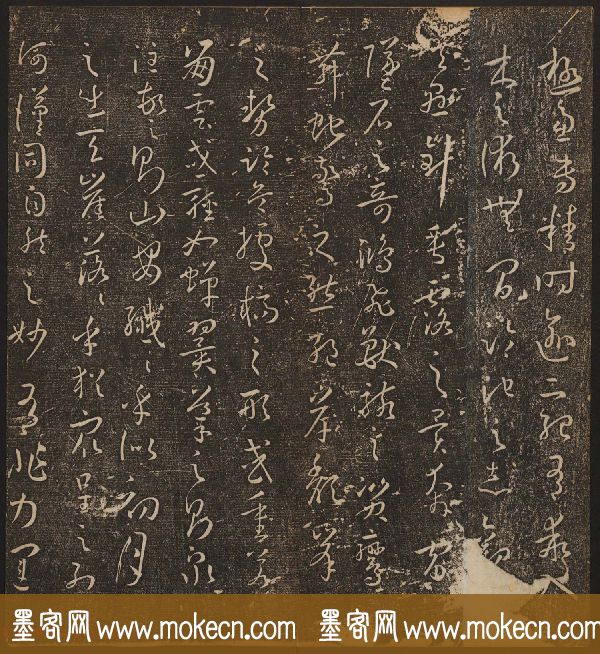 極慮專精時逾二紀有乖入
木之術無間臨池之志觀
夫懸針垂露之異奔雷
墜石之奇鴻飛獸駭之資鸞
舞蛇驚之態絕岸頹峯
之勢臨危據槁之形或重若
崩雲或輕如蟬翼導之則泉
注頓之則山安纖〻乎似初月
之出天崖落〻乎猶眾星之列
河漢同自然之妙有非力運
墨客网 www.mokecn.com 墨客网 www.mokecn.com